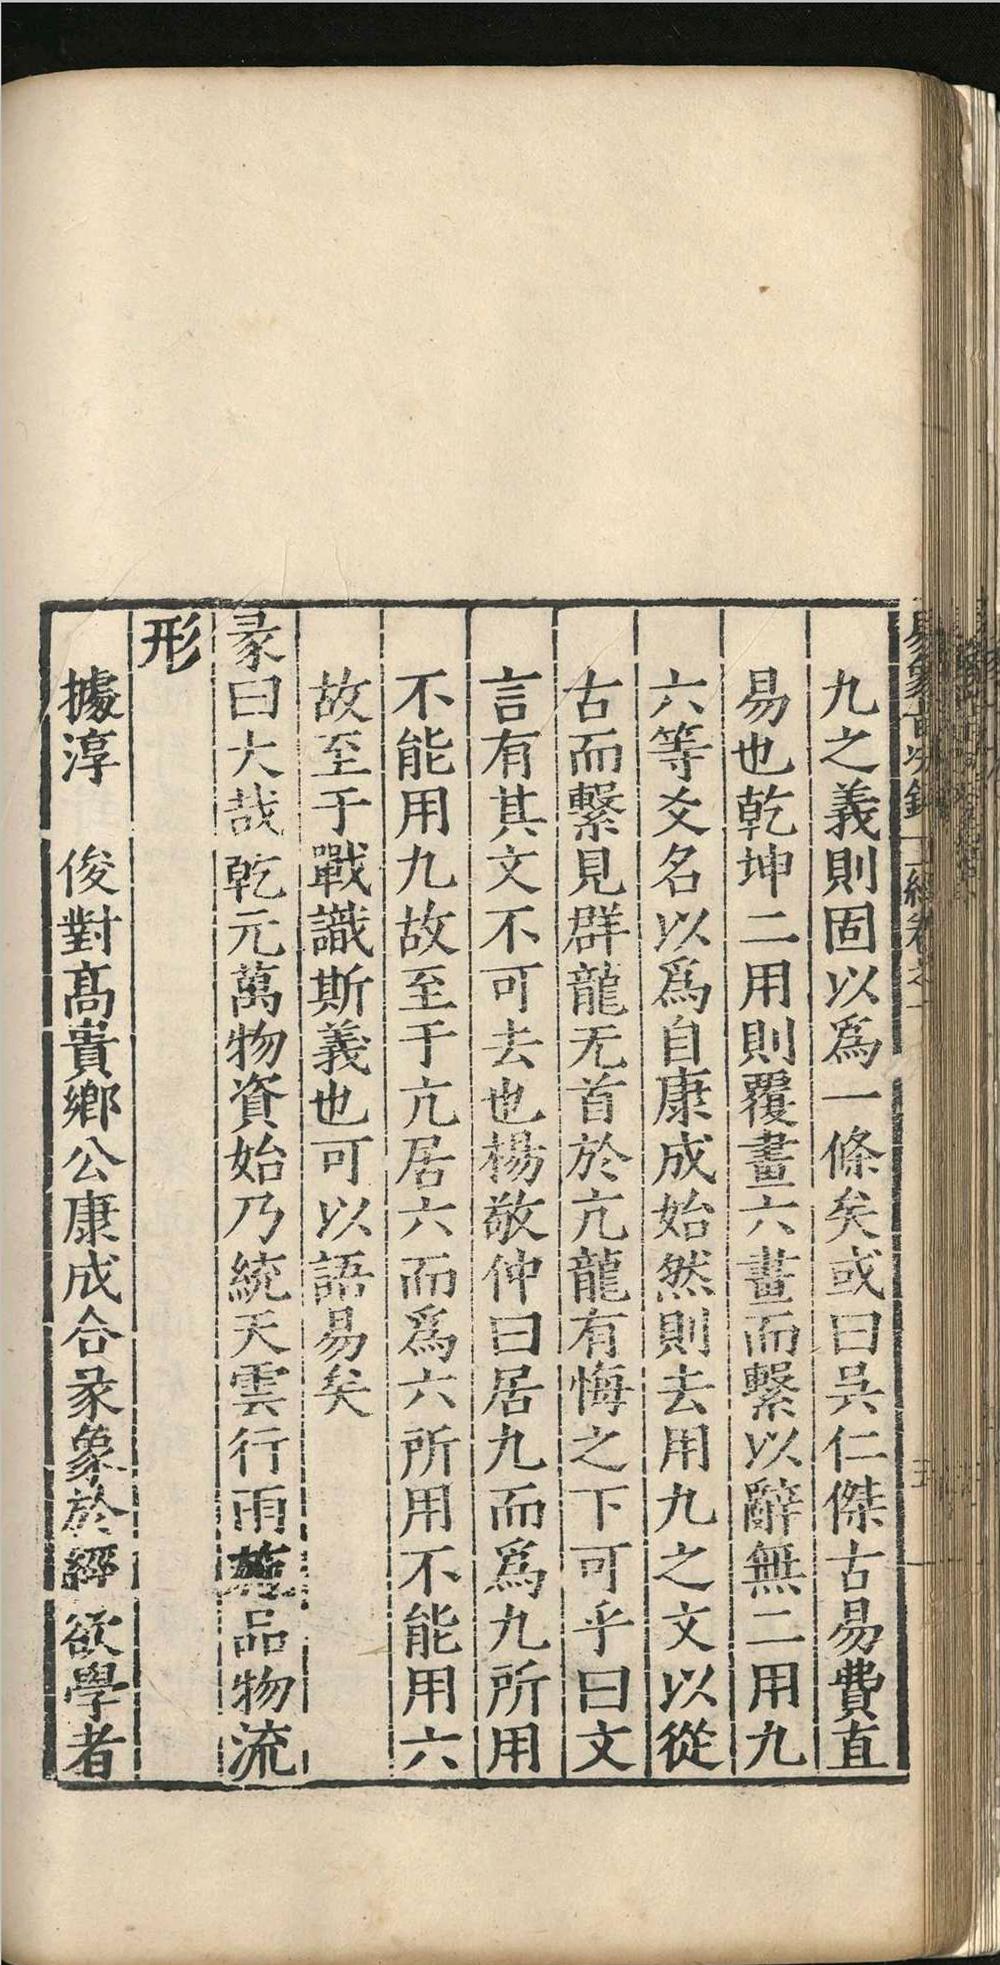 九之義則固以爲一條矣或曰吳仁傑古易費直
易也乾坤二用則覆畫六畫而繫以辭無二用九
六等爻名以爲自康成始然則去用九之文以從
古而繫見群龍无首於亢龍有悔之下可乎曰文
言有其文不可去也楊敬仲曰居九而爲九所用
不能用九故至于亢居六而爲六所用不能用六
故至于戰識斯義也可以語易矣
彖曰大哉乾元萬物資始乃統天雲行雨施品物流
形
據淳 俊對高貴鄉公康成合彖象於經欲學者